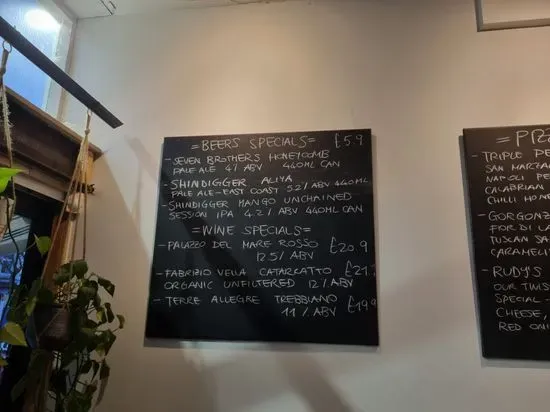 =BEERS SPECIALS= £5.9
- SEVEN BROTHERS HONEYCOMB
PALE ALE 4% ABV 440ML CAN
- SHINDIGGER ALIYA
PALE ALE-EAST COAST 5.2% ABV 440ML
- SHINDIGGER MANGO UNCHAINED
SESSION IPA 4.2% ABV 440ML CAN
=WINE SPECIALS=
- PALAZZO DEL MARE ROSSO £20.9
12.5% ABV
- FABRIZIO VELLA CATARRATTO £21.
ORGANIC UNFILTERED 12% ABV
- TERRE ALLEGRE TREBBIANO £19.9
11% ABV
= PIZZ
- TRIPLE PE
SAN MARZA
NAPOLI PE
CALABRIAN
CHILLI HONE
- GORGONZ
FIOR DI LA
TUSCAN SA
CARAMELI
- RUDY'S
OUR TWIS
SPECIAL -
CHEESE,
RED ONI